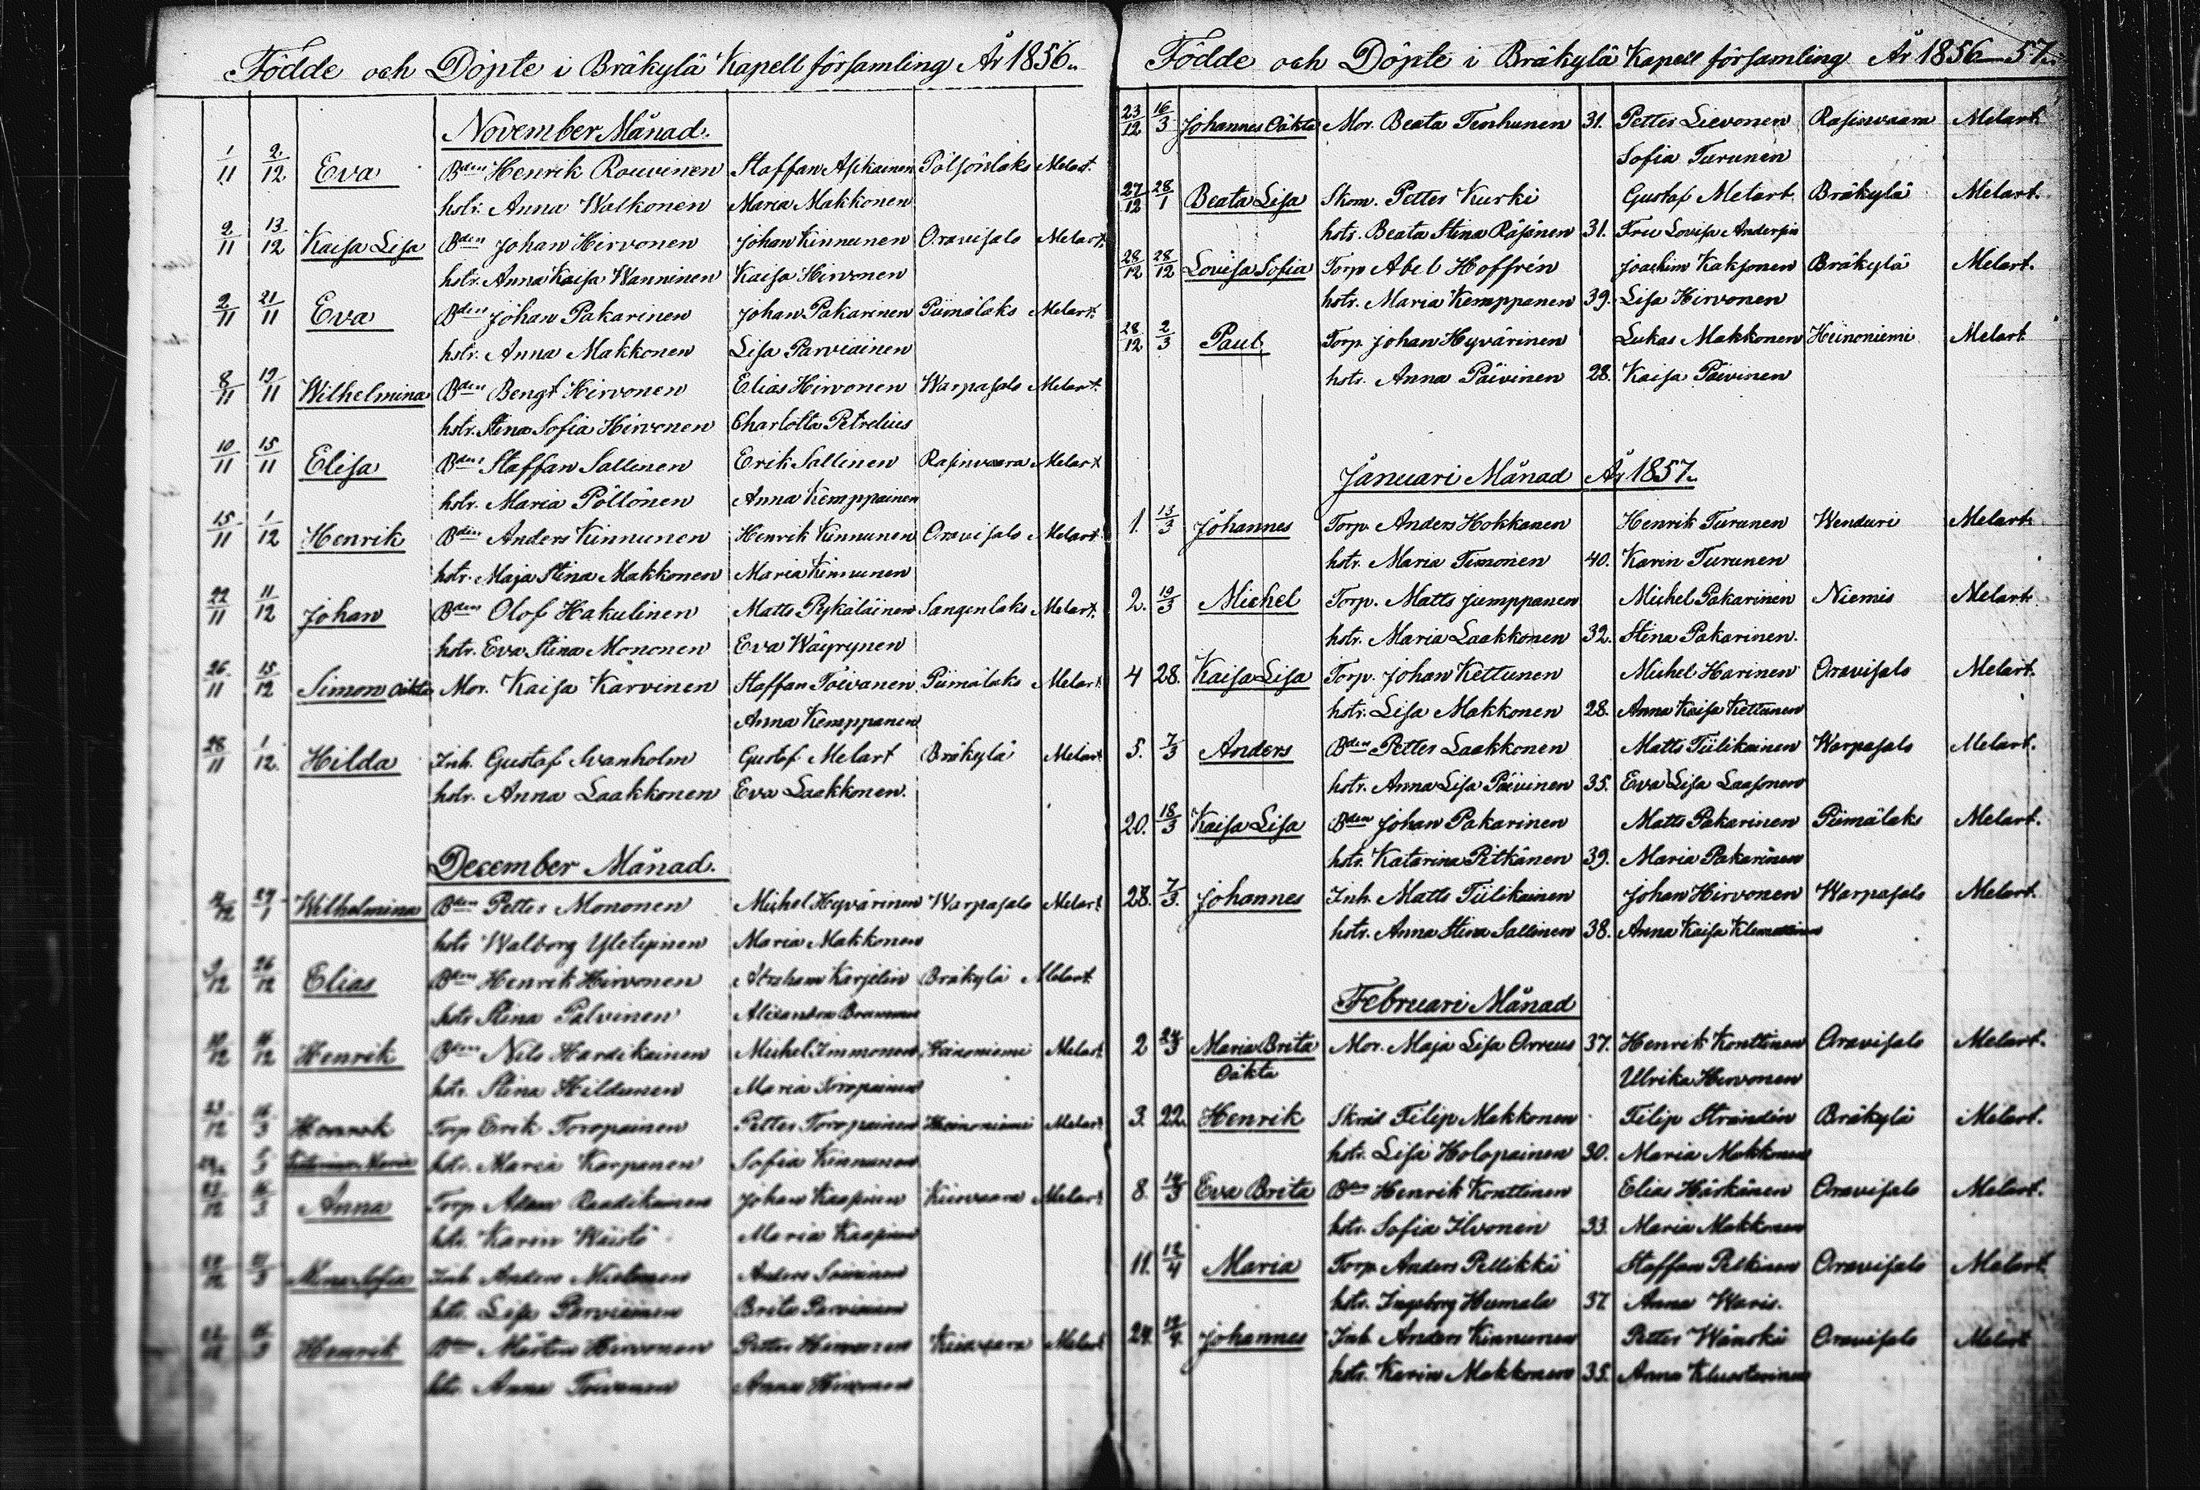 Födde och Döpte i Bräkylä Kapell församling År 1856.
November Månad.
1/11 2/12 Eva Bden Henrik Rouvinen Staffan Asikainen Pölsönlaks Melart.
hstr. Anna Walkonen Maria Makkonen
2/11 13/12 Kaisa Lisa Bden Johan Hirvonen Johan Kinnunen Oravisalo Melart.
hstr. Anna Kaisa Wanninen Kaisa Hirvonen
2/11 21/11 Eva Bden Johan Pakarinen Johan Pakarinen Piimälaks Melart.
hstr. Anna Makkonen Lisa Parviainen
8/11 19/11 Wilhelmina Bden Bengt Hirvonen Elias Hirvonen Warpasalo Melart.
hstr. Stina Sofia Hirvonen Charlotta Petrelius
10/11 15/11 Elisa Bden Staffan Sallinen Erik Sallinen Rasinvaara Melart
hstr. Maria Pöllönen Anna Kemppainen
15/11 1/12 Henrik Bden Anders Kinnunen Henrik Kinnunen Oravisalo Melart.
hstr. Maja Stina Makkonen Maria Kinnunen
22/11 11/12 Johan Bden Olof Hakulinen Matts Pykäläinen Sangenlaks Melart.
hstr. Eva Stina Mononen Eva Wäyrynen
26/11 15/12 Simon Oäkta Mor. Kaisa Karvinen Staffan Toivanen Piimälaks Melart.
Anna Kemppanen
28/11 1/12. Hilda Inh. Gustaf Svanholm Gustaf Melart Bräkylä Melart
hstr. Anna Laakkonen Eva Laakkonen.
December Månad.
29/1 Wilhelmina Bden Petter Mononen Michel Hyvärinen Warpasalo Melart
hstr Walborg Yletyinen Maria Makkonen
26/12 Elias Bden Henrik Hirvonen Abraham Karjelin Bräkylä Melart.
hstr Stina Palvinen Alexandra
Henrik Bden Nils Hardikainen Michel Immonen Heinoniemi Melart
hstr. Stina Hildunen Maria Toropainen
Henrik Torp Erik Toropainen Petter Toropainen Heinoniemi Melart
Maria hstr. Maria Karpanen Sofia Kinnunen
Anna Torp Adam Raadikainen Johan Kaapinen Kiirvaara Melart
hstr. Karin Wäistö Maria Kaapinen
Mina Sofia Inh Anders Anders Soininen
hstr. Lisa Parviainen Brita Parviainen
Henrik Bden Mårten Hirvonen Petter Hirvonen Melart
hstr Anna Toivanen Anna Hirvonen
Födde och Döpte i Bräkylä Kapell församling År 1856—57.
23/12 16/3 Johannes Oäkta Mor. Beata Tenhunen 31. Petter Lievonen Rasinvaara Melart.
Sofia Turunen
27/12 28/1 Beata Lisa Skom. Petter Kurki Gustaf Melart Bräkylä Melart.
hstr. Beata Stina Räsänen 31. Fru Lovisa Andersin
28/12 28/12 Lovisa Sofia Torp Abel Hoffrén Joachim Kaksonen Bräkylä Melart.
hstr. Maria Kemppanen 39. Lisa Hirvonen
28/12 2/3 Paul Torp Johan Hyvärinen Lukas Makkonen Heinoniemi Melart
hstr. Anna Päivinen 28. Kaisa Päivinen
Januari Månad År 1857.
1. 13/3 Johannes Torp Anders Hokkanen Henrik Turunen Wenduri Melart.
hstr. Maria Timonen 40. Karin Turunen
2. 19/3 Michel Torp. Matts Jumppanen Michel Pakarinen Niemis Melart.
hstr. Maria Laakkonen 32. Stina Pakarinen.
4 28. Kaisa Lisa Torp. Johan Kettunen Michel Harinen Oravisalo Melart.
hstr. Lisa Makkonen 28. Anna Kaisa Kettunen
5. 7/3 Anders Bden Petter Laakkonen Matts Tiilikainen Warpasalo Melart.
hstr. Anna Lisa Päivinen 35. Eva Lisa Laasonen
20. 18/3 Kaisa Lisa Bden Johan Pakarinen Matts Pakarinen Piimälaks Melart.
hstr. Katarina Pitkänen 39. Maria Pakarinen
28. 7/3. Johannes Inh. Matts Tiilikainen Johan Hirvonen Warpasalo Melart.
hstr. Anna Stina Sallinen 38. Anna Kaisa
Februari Månad
2 24/3 Maria Brita Mor. Maja Lisa Orreus 37. Henrik Konttinen Oravisalo Melart.
Oäkta Ulrika Hirvonen
3. 22. Henrik Skräd Filip Makkonen Filip Strandén Bräkylä Melart.
hstr. Lisa Holopainen 30. Maria Makkonen
8. 14/3 Eva Brita Bden Henrik Konttinen Elias Härkänen Oravisalo Melart.
hstr. Sofia Ilvonen 33. Maria Makkonen
11. 12/4 Maria Torp Anders Pellikkä Staffan Oravisalo Melart
hstr. Ingeborg Humala 37 Anna Waris.
24. 12/4. Johannes Inh. Anders Kinnunen Petter Wänskä Oravisalo Melart
hstr. Karin Makkonen 35. Anna